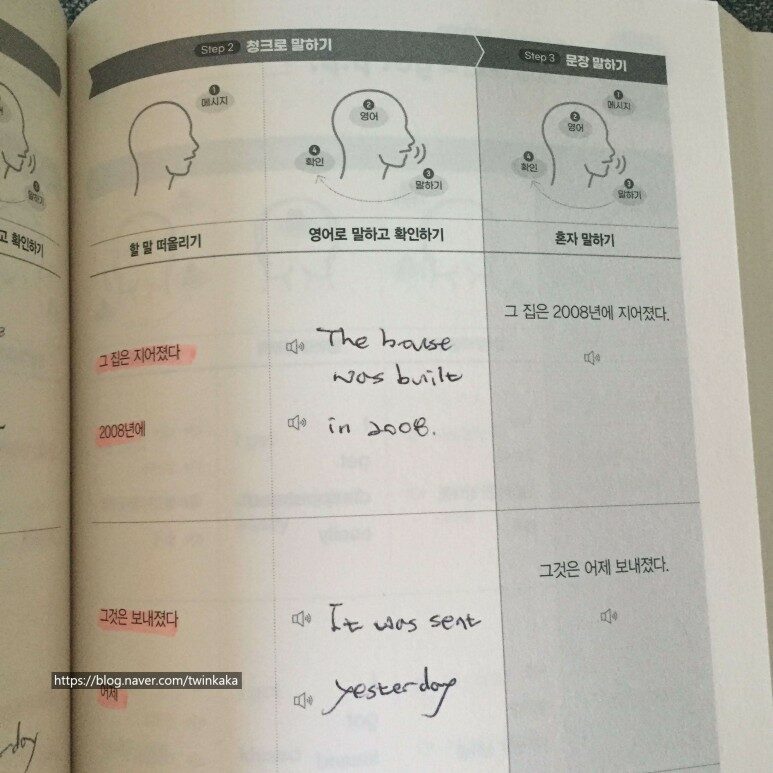 Step 2 청크로 말하기
Step 3 문장 말하기
❶ 메시지
❷ 영어
❹ 확인
❸ 말하기
❶ 메시지
❷ 영어
❹ 확인
❸ 말하기
말하기
고 확인하기
할 말 떠올리기
영어로 말하고 확인하기
혼자 말하기
그 집은 2008년에 지어졌다.
그 집은 지어졌다
The house
was built
2008년에
in 2008.
그것은 어제 보내졌다.
그것은 보내졌다
It was sent
https://blog.naver.com/twinkaka
어제
yesterday